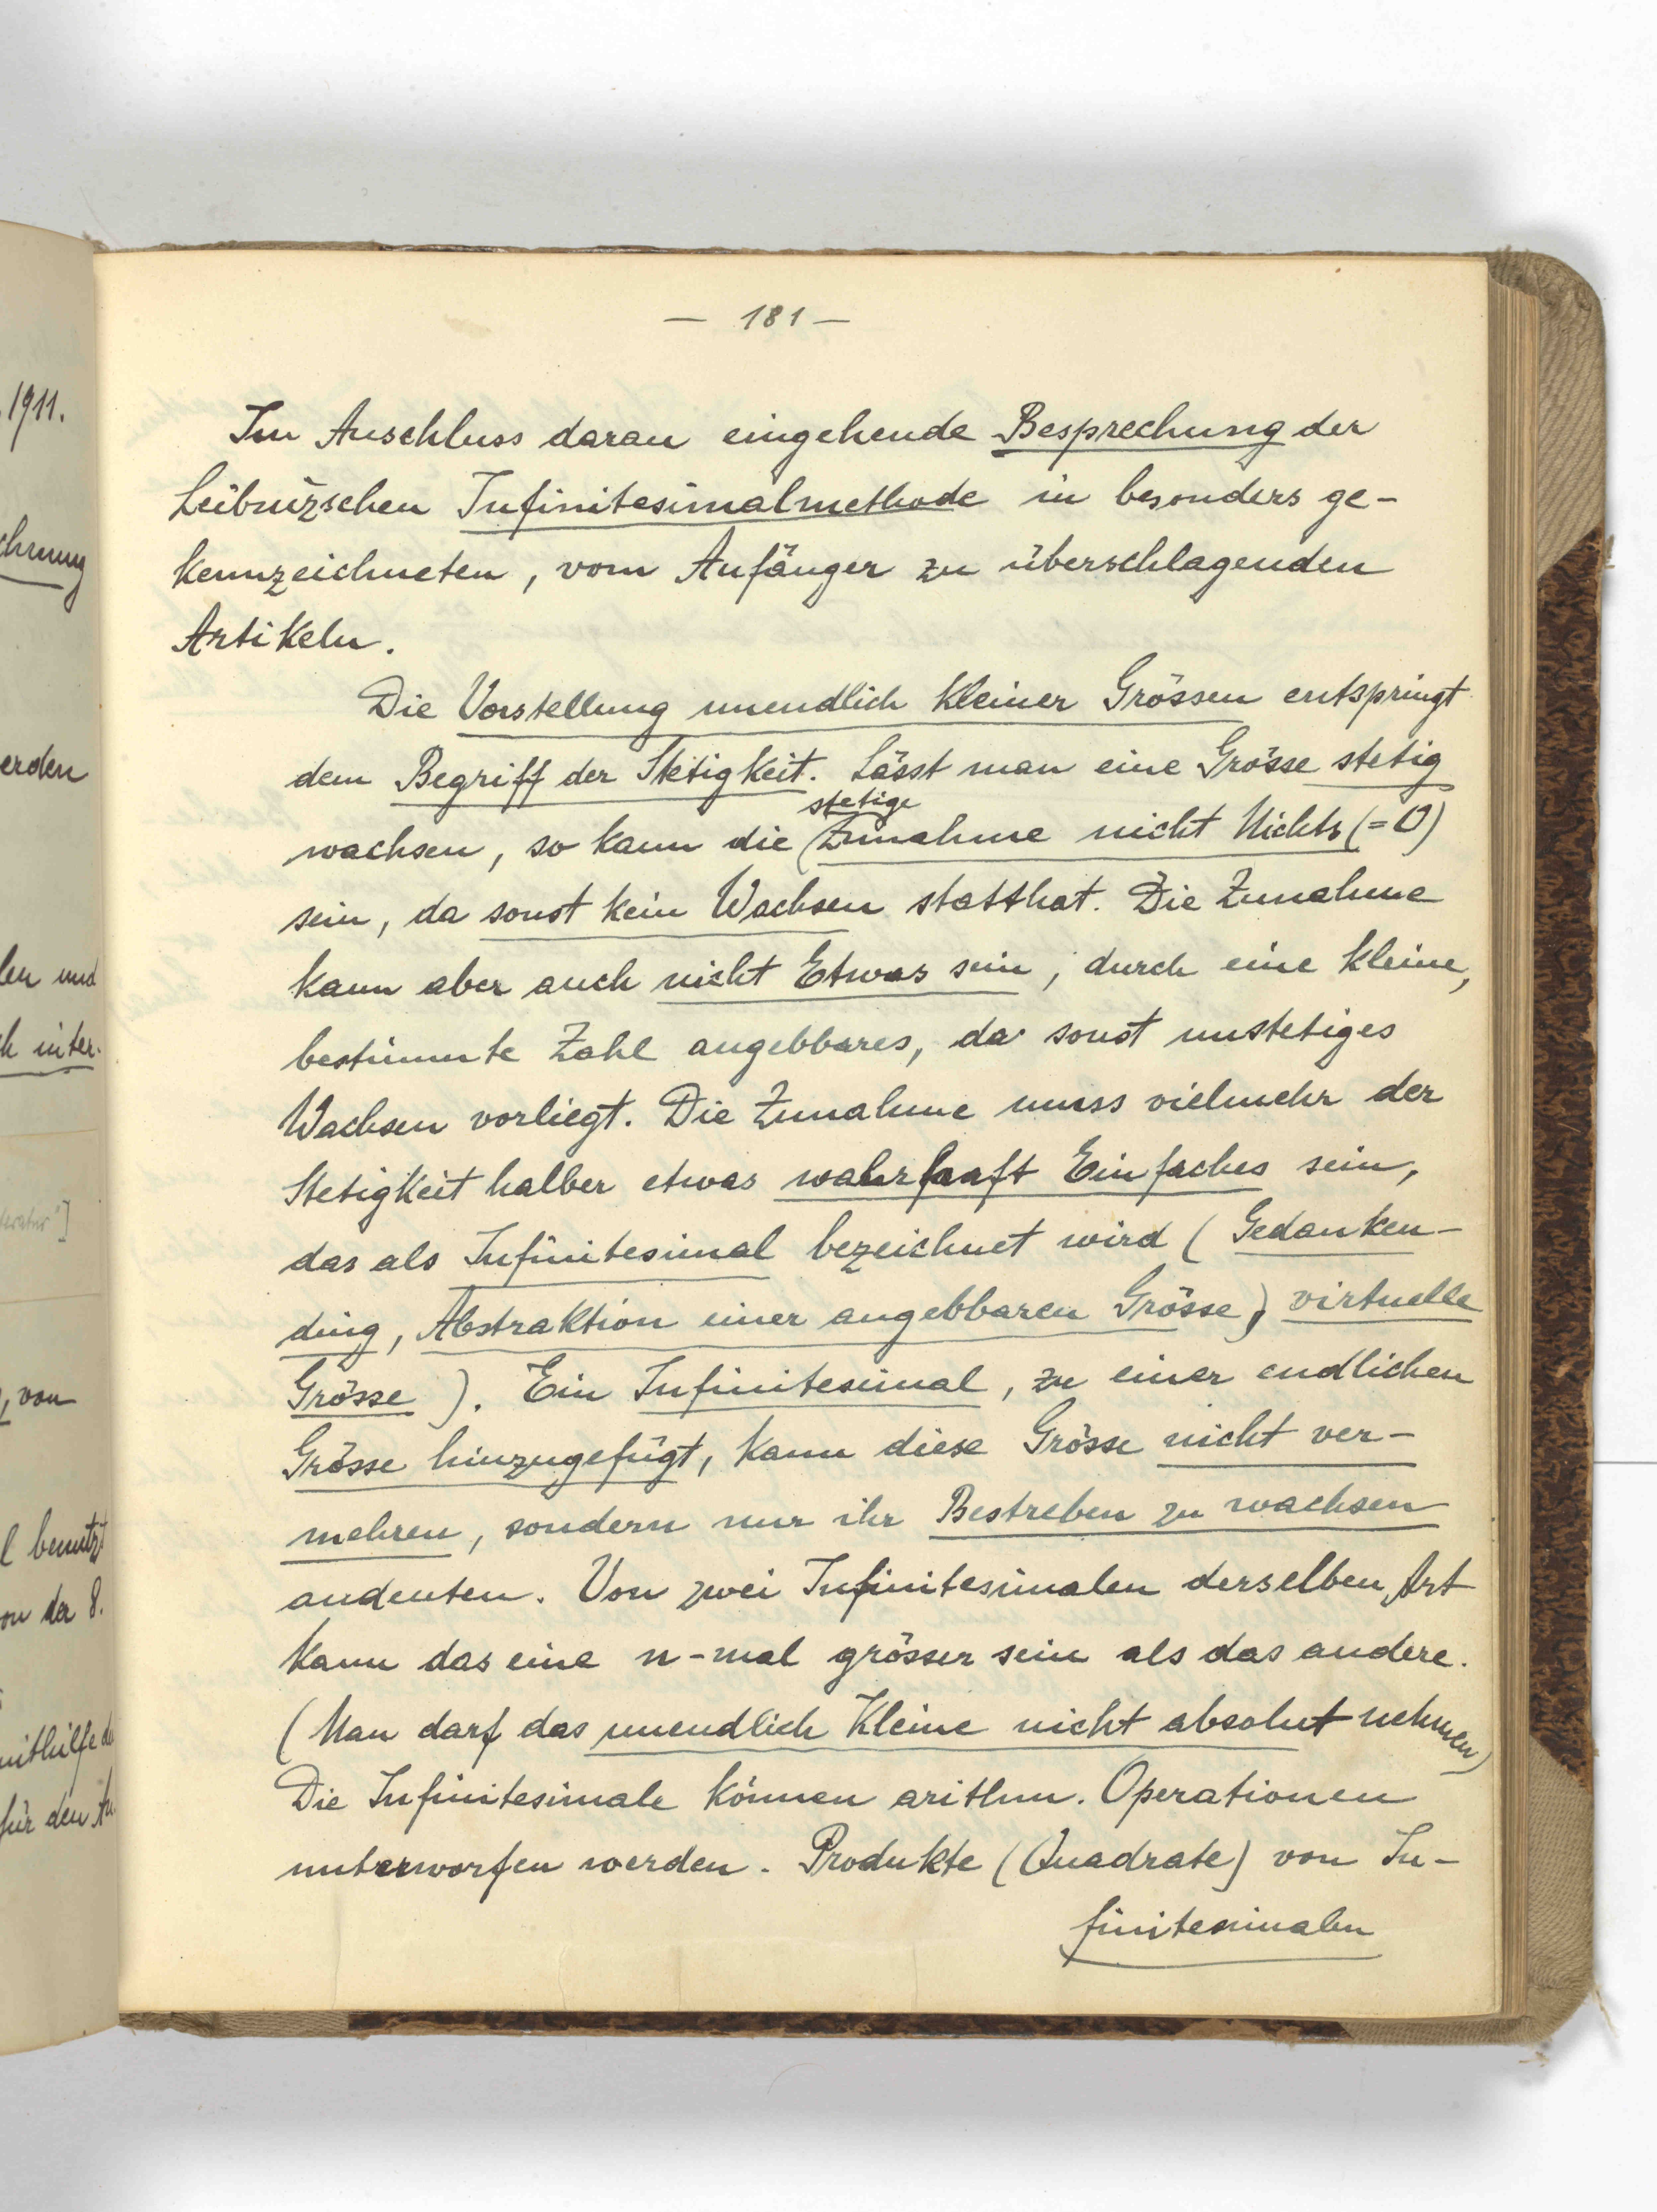 — 181 —
Im Anschluss daran eingehende Besprechung der
Leibnizschen Infinitesimalmethode in besonders ge-
kennzeichneten, vom Anfänger zu überschlagenden
Artikeln.
Die Vorstellung unendlich kleiner Grössen entspringt
dem Begriff der Stetigkeit. Lässt man eine Grösse stetig
stetige
wachsen, so kann die (Zunahme nicht Nichts (=0)
sein, da sonst kein Wachsen statthat. Die Zunahme
kann aber auch nicht Etwas sein, durch eine kleine,
bestimmte Zahl angebbares, da sonst unstetiges
Wachsen vorliegt. Die Zunahme muss vielmehr der
Stetigkeit halber etwas wahrhaft Einfaches sein,
das als Infinitesimal bezeichnet wird (Gedanken-
ding, Abstraktion einer angebbaren Grösse, virtuelle
Grösse). Ein Infinitesimal, zu einer endlichen
Grösse hinzugefügt, kann diese Grösse nicht ver-
mehren, sondern nur ihr Bestreben zu wachsen
andeuten. Von zwei Infinitesimalen derselben Art
kann das eine n-mal grösser sein als das andere.
(Man darf das unendlich Kleine nicht absolut nehmen)
Die Infinitesimale können arithm. Operationen
unterworfen werden. Produkte (Quadrate) von In-
finitesimalen
1911.
chnung
erden
len und
h inter-
, von
l benutzt
on der 8.
mithilfe de
für den An